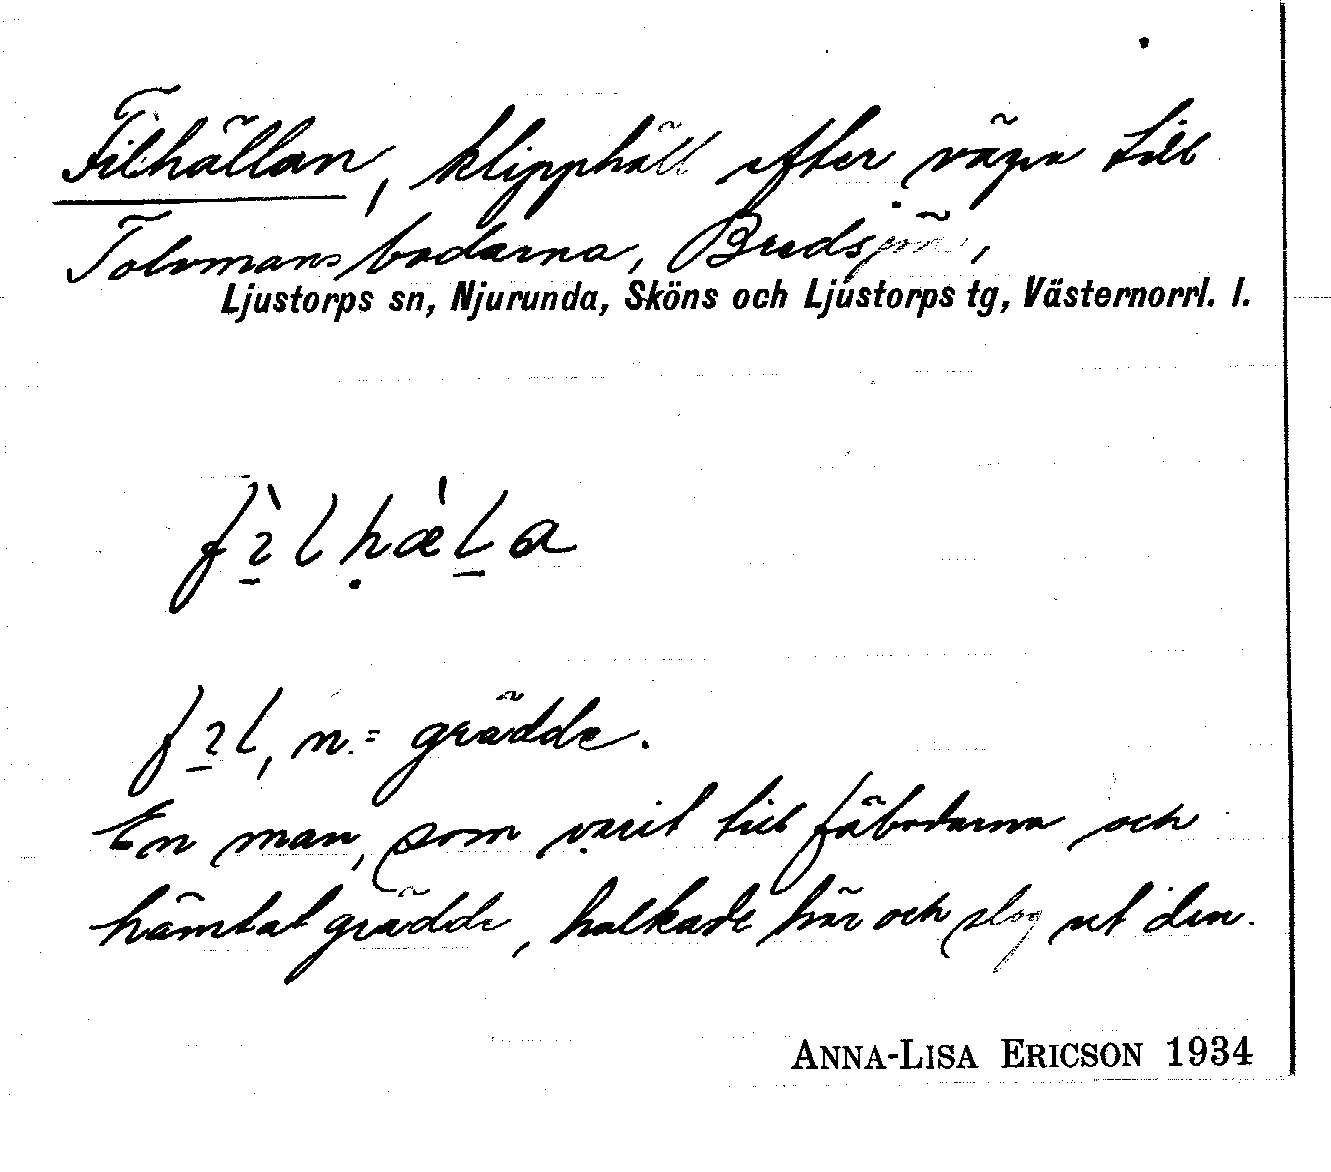 Filhällan, klipphäll efter vägen till
Tolvmansbodarna, Bredsjön,
Ljustorps sn, Njurunda, Sköns och Ljustorps tg, Västernorrl. l.
fìlhæ̀la
fıl, n. = grädde.
En man, som varit till fäbodarna och
hämtat grädde, halkade här och slog ut den.
ANNA-LISA ERICSON 1934